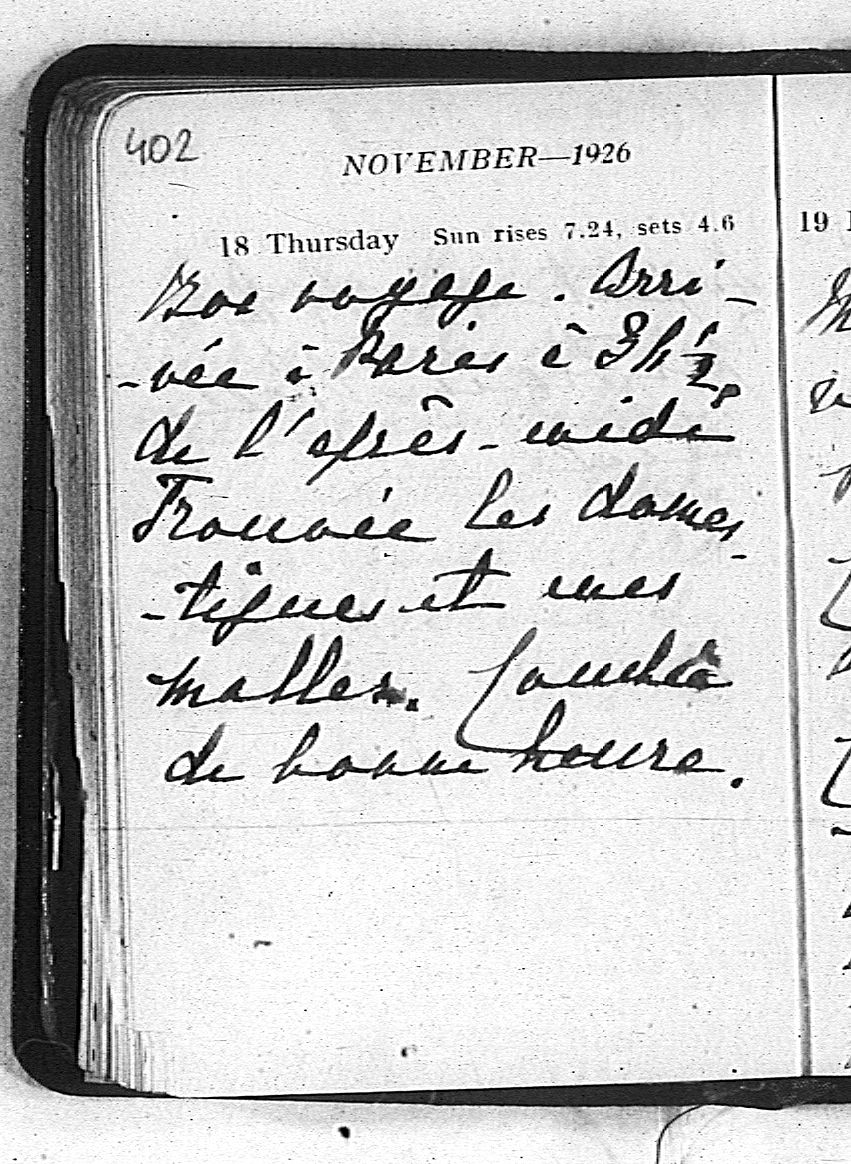 402
NOVEMBER—1926
18 Thursday Sun rises 7.24, sets 4.6
19
Bon voyage. Arri-
-vée à Paris à 3h ½
de l'après-midi
Trouvée les domes-
-tiques et mes
malles. Couchée
de bonne heure.